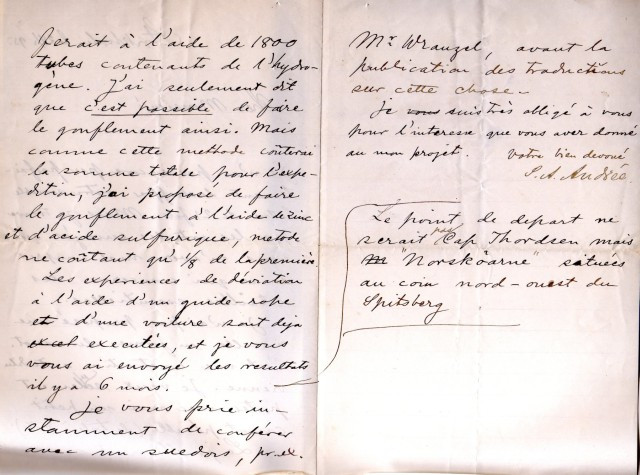 ferait à l'aide de 1800
tubes contenants de l'hydro-
gène. J'ai seulement dit
que c'est possible de faire
le gonflement ainsi. Mais
comme cette methode conterai
la somme totale pour l'expe-
dition, j'ai proposé de faire
le gonflement à l'aide de zinc
et d'acide sulfurique, metode
ne coûtant qu' 1/8 de la première.
Les experiences de déviation
à l'aide d'un guide-rope
et d'une voiture sont deja
executées, et je vous
vous ai envoyé les resultats
il y a 6 mois.
Je vous prie in-
stamment de conférer
avec un suedois, p. ex.
Mr Wrangel, avant la
publication des traductions
sur cette chose.
Je vous suis très obligé à vous
pour l'interesse que vous aver donné
au mon projet. Votre bien devoué
S. A. Andrée
Le point de depart ne
serait pas Cap Thordsen mais
"Norsköarne" situées
au coin nord-ouest du
Spitsberg